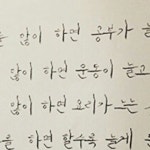 많이 하면 공부가 늘
많이 하면 운동이 늘고
많이 하면 요리가 느는
하면 할수록 늘게